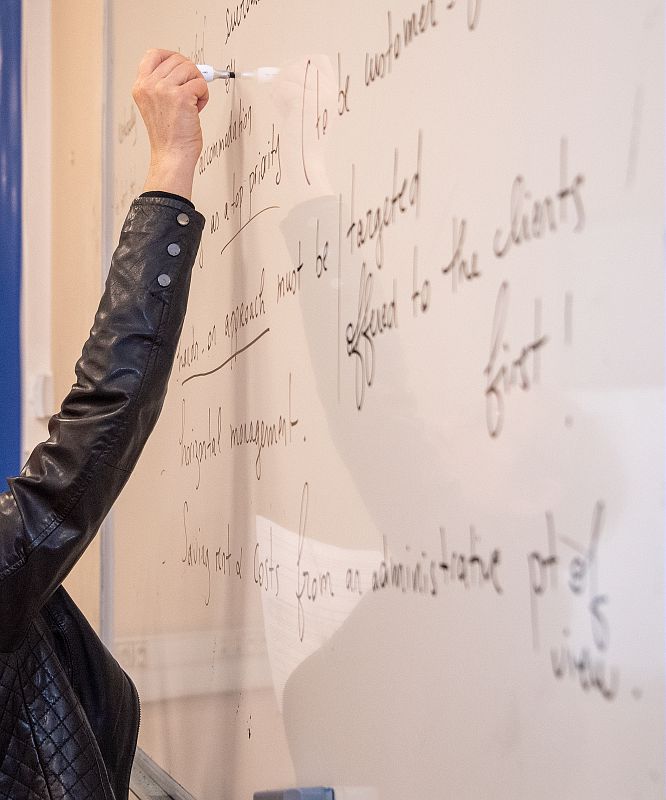 (to be customer-
accommodation
as a top priority
hands-on approach must be targeted
offered to the clients
first!
- horizontal management.
- Saving rent & costs from an administrative pt of
view.